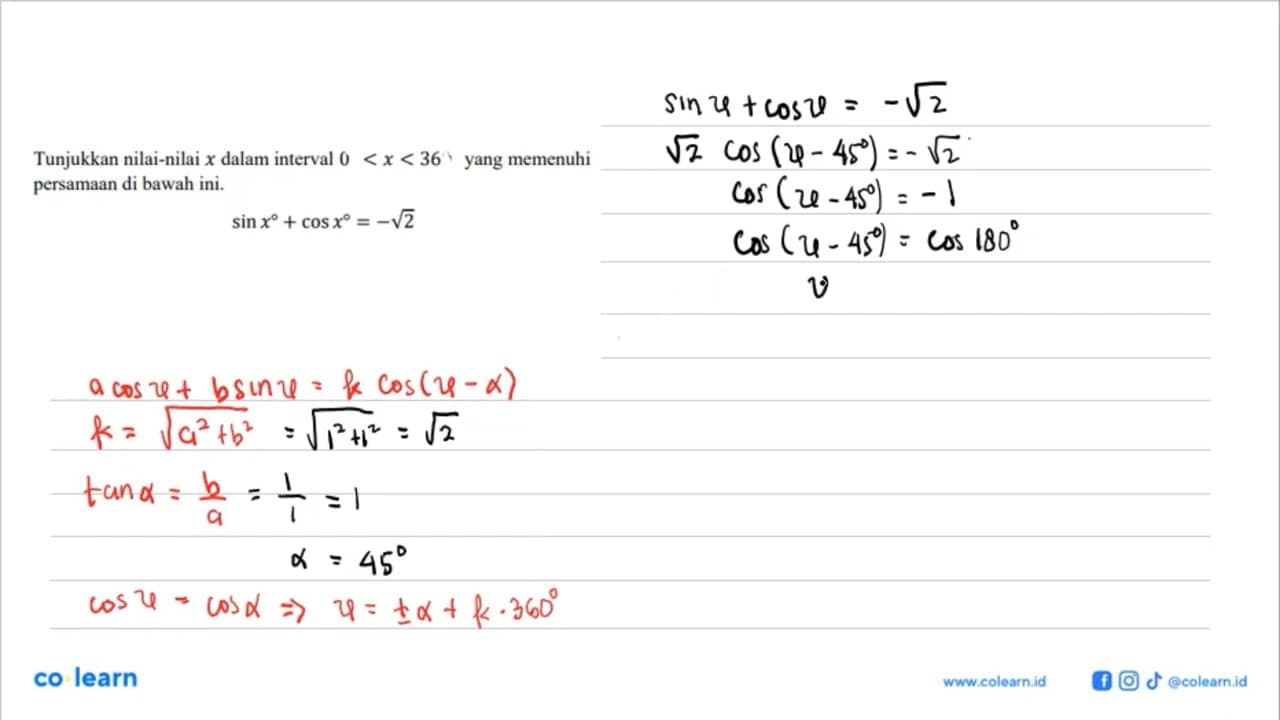 Tunjukkan nilai-nilai x dalam interval 0 < x < 36 yang memenuhi
persamaan di bawah ini.
sin x° + cos x° = −√2
sin x + cos x = -√2
√2 cos (x - 45°) = -√2
cos (x - 45°) = -1
cos (x - 45°) = cos 180°
a cos x + b sin x = k cos (x - α)
k = √a² + b² = √1² + 1² = √2
tan α = b/a = 1/1 = 1
α = 45°
cos x = cos α ⇒ x = ± α + k · 360°
co learn
www.colearn.id
@colearn.id